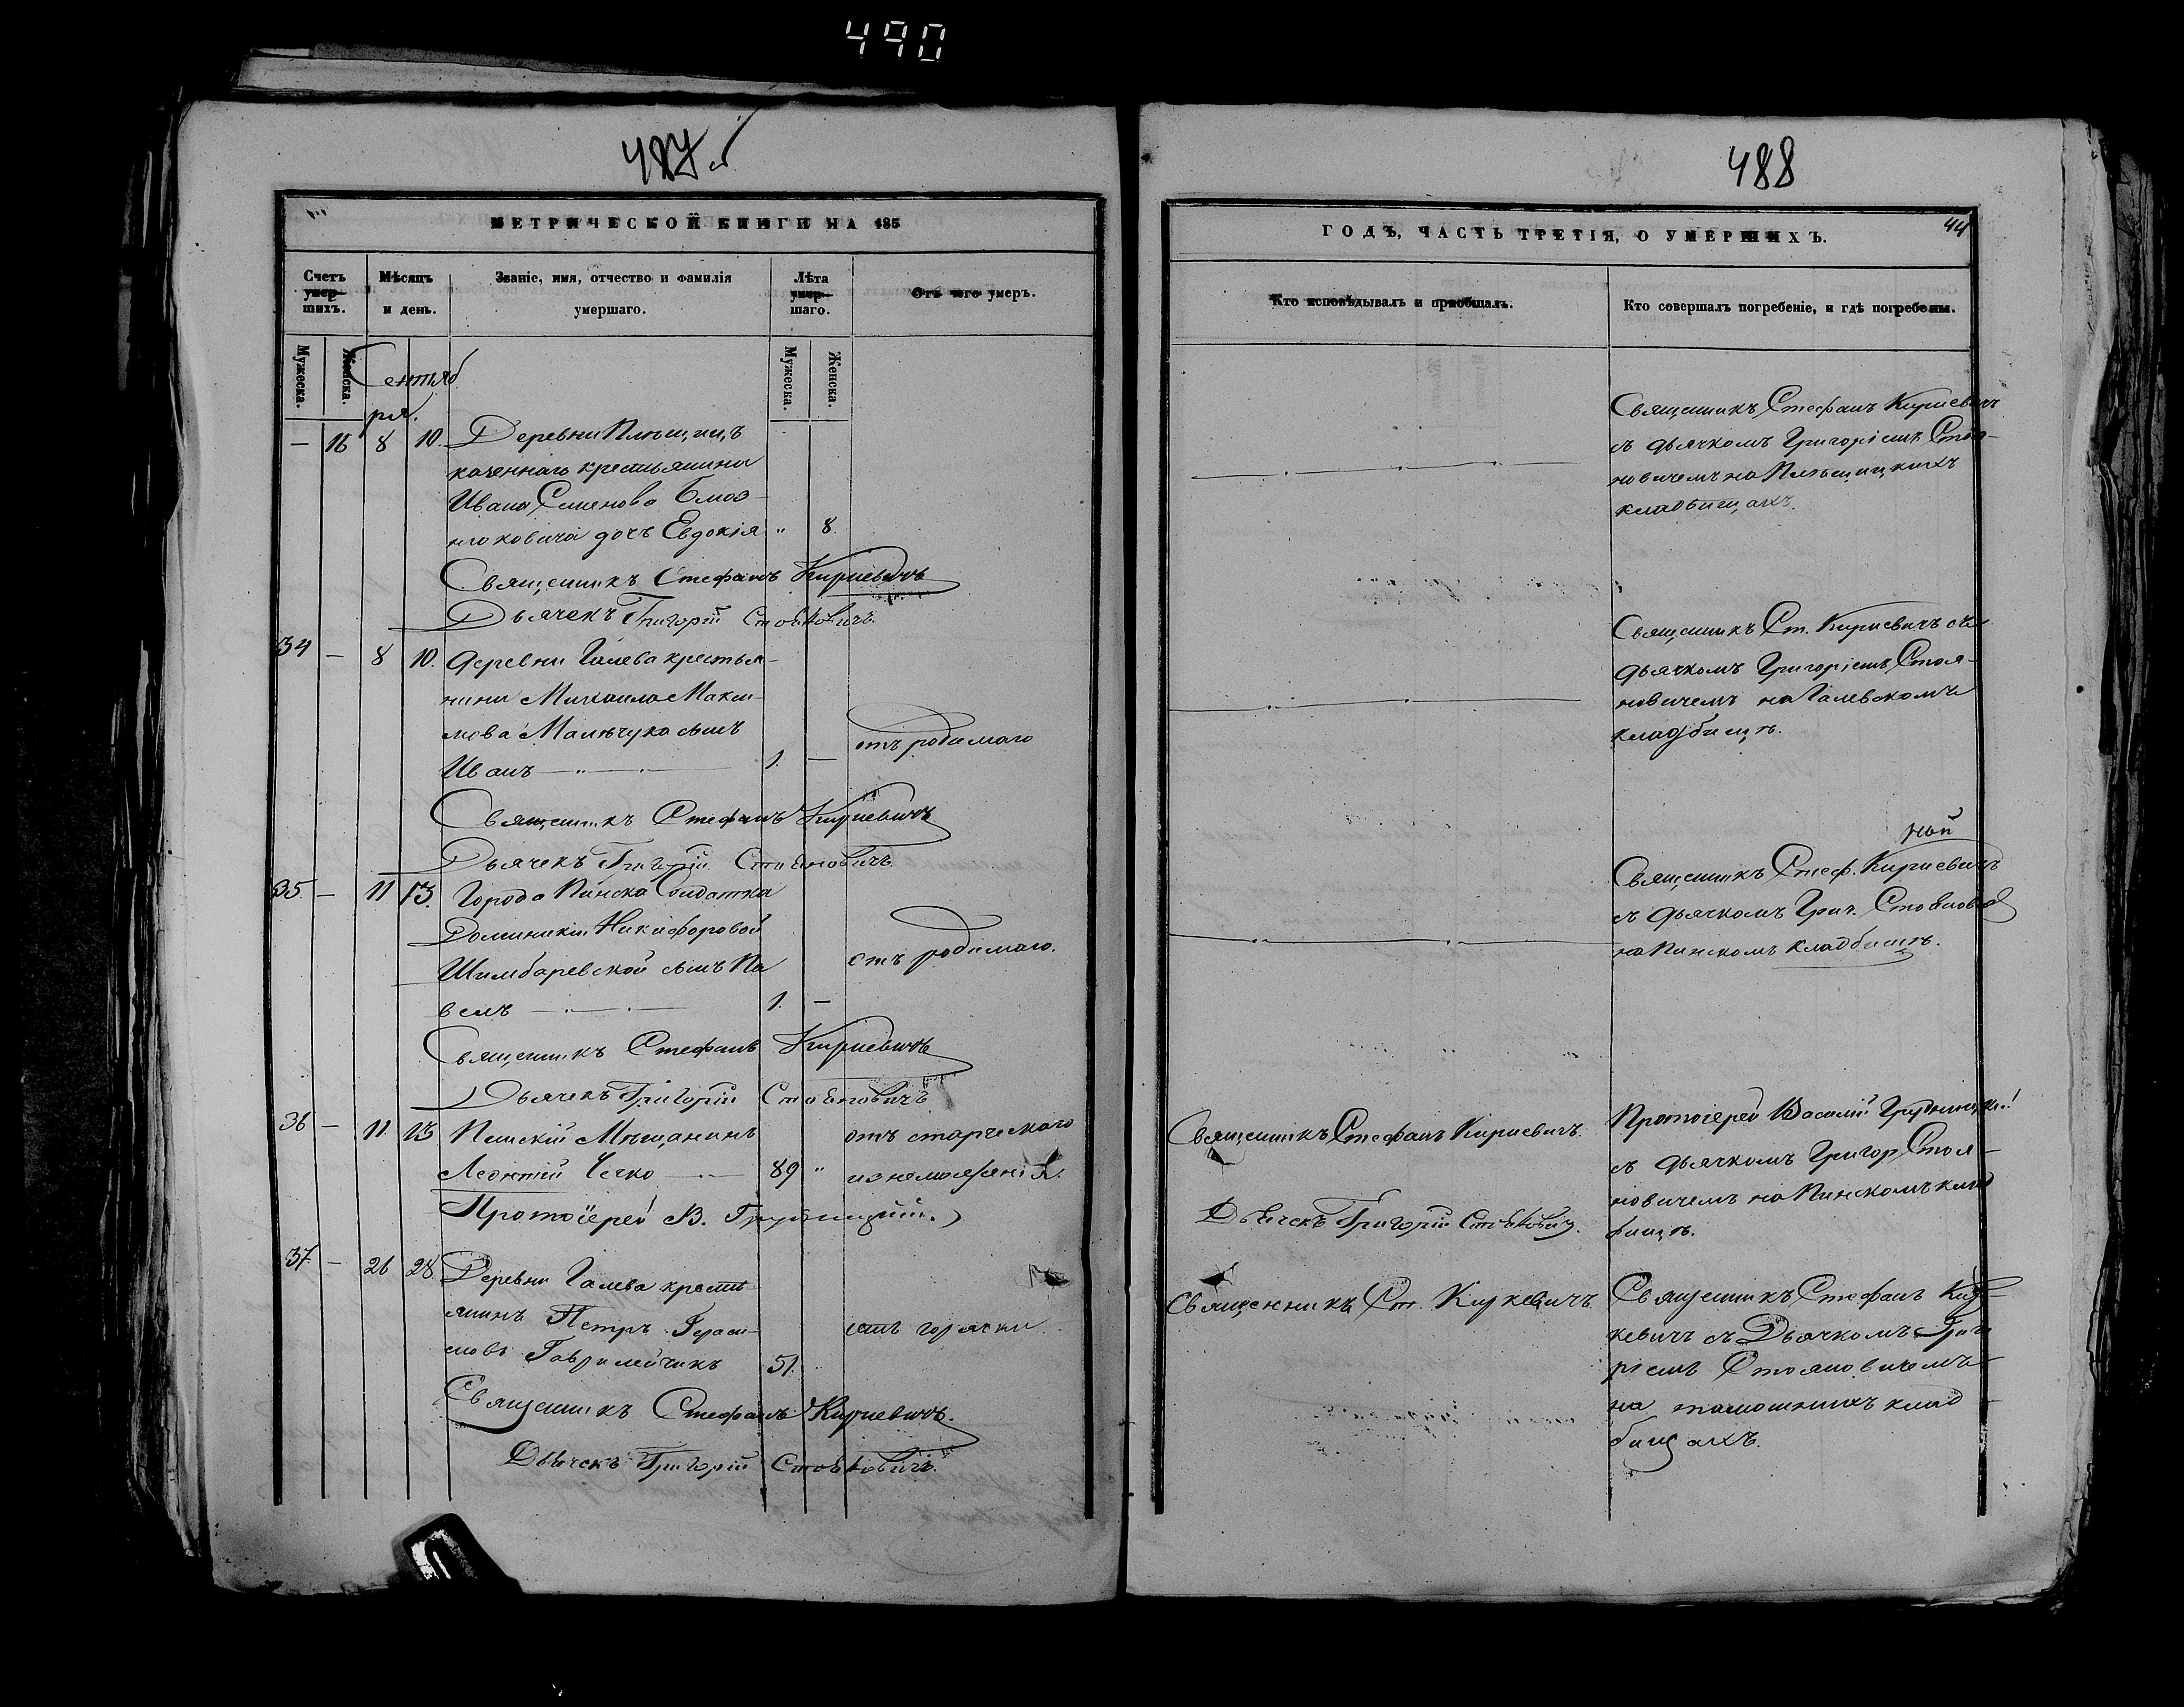 490
487
МЕТРИЧЕСКОЙ КНИГИ НА 185
Счетъ умер-шихъ.
Мѣсяцъ и день.
Званіе, имя, отчество и фамилія умершаго.
Лѣта умер-шаго.
Отъ чего умеръ.
Мужеска.
Женска.
Мужеска.
Женска.
Сентяб
ря.
— 16 8 10. Деревни
казеннаго крестьянина
Ивана Семенова
дочь Евдокія " 8.
Священникъ Стефанъ Киркевичъ
Дьячекъ Григорій Стояновичъ
34 — 8 10. Деревни Галева крестья-
нина Михаила Макси-
мова Мальчука сынъ
Иванъ 1. — отъ родимаго
Священникъ Стефанъ Киркевичъ
Дьячекъ Григорій Стояновичъ
35. — 11 13. Города Пинска Солдатки
Доминикіи Никифоровой
Шимбаревской сынъ Па
велъ 1. — отъ родимаго.
Священникъ Стефанъ Киркевичъ
Дьячекъ Григорій Стояновичъ
36 — 11. 13 Пинскій Мѣщанинъ отъ старческаго
Леонтій 89 " изнеможенія.
Протоіерей В. Грудницкій.
37. — 26 28. Деревни Галева кресть
янинъ Петръ Гераси-
мовъ Гаврилейчикъ 51. отъ горячки
Священникъ Стефанъ Киркевичъ.
Дьячекъ Григорій Стояновичъ.
488
ГОДЪ, ЧАСТЬ ТРЕТІЯ, О УМЕРШИХЪ.
44
Кто исповѣдывалъ и приобщалъ.
Кто совершалъ погребеніе, и гдѣ погребены.
Священникъ Стефанъ Киркевичъ
съ дьячкомъ Григоріемъ Стоя-
новичемъ на
кладбищахъ.
Священникъ Ст. Киркевичъ съ
дьячкомъ Григоріемъ Стоя-
новичемъ на Галевскомъ
кладбищѣ.
Священникъ Стеф. Киркевичъ
съ дьячкомъ Григ.
на Пинскомъ кладбищѣ.
Священникъ Стефанъ Киркевичъ.
Дьячекъ Григорій Стояновичъ.
Протоіерей Василій Грудницкій
съ дьячкомъ Григор. Стоя-
новичемъ на Пинскомъ клад
бищѣ.
Священникъ Ст. Киркевичъ.
Священникъ Стефанъ Кир-
кевичъ съ Дьячкомъ Григо
ріемъ Стояновичемъ
на тамошнихъ клад-
бищахъ.